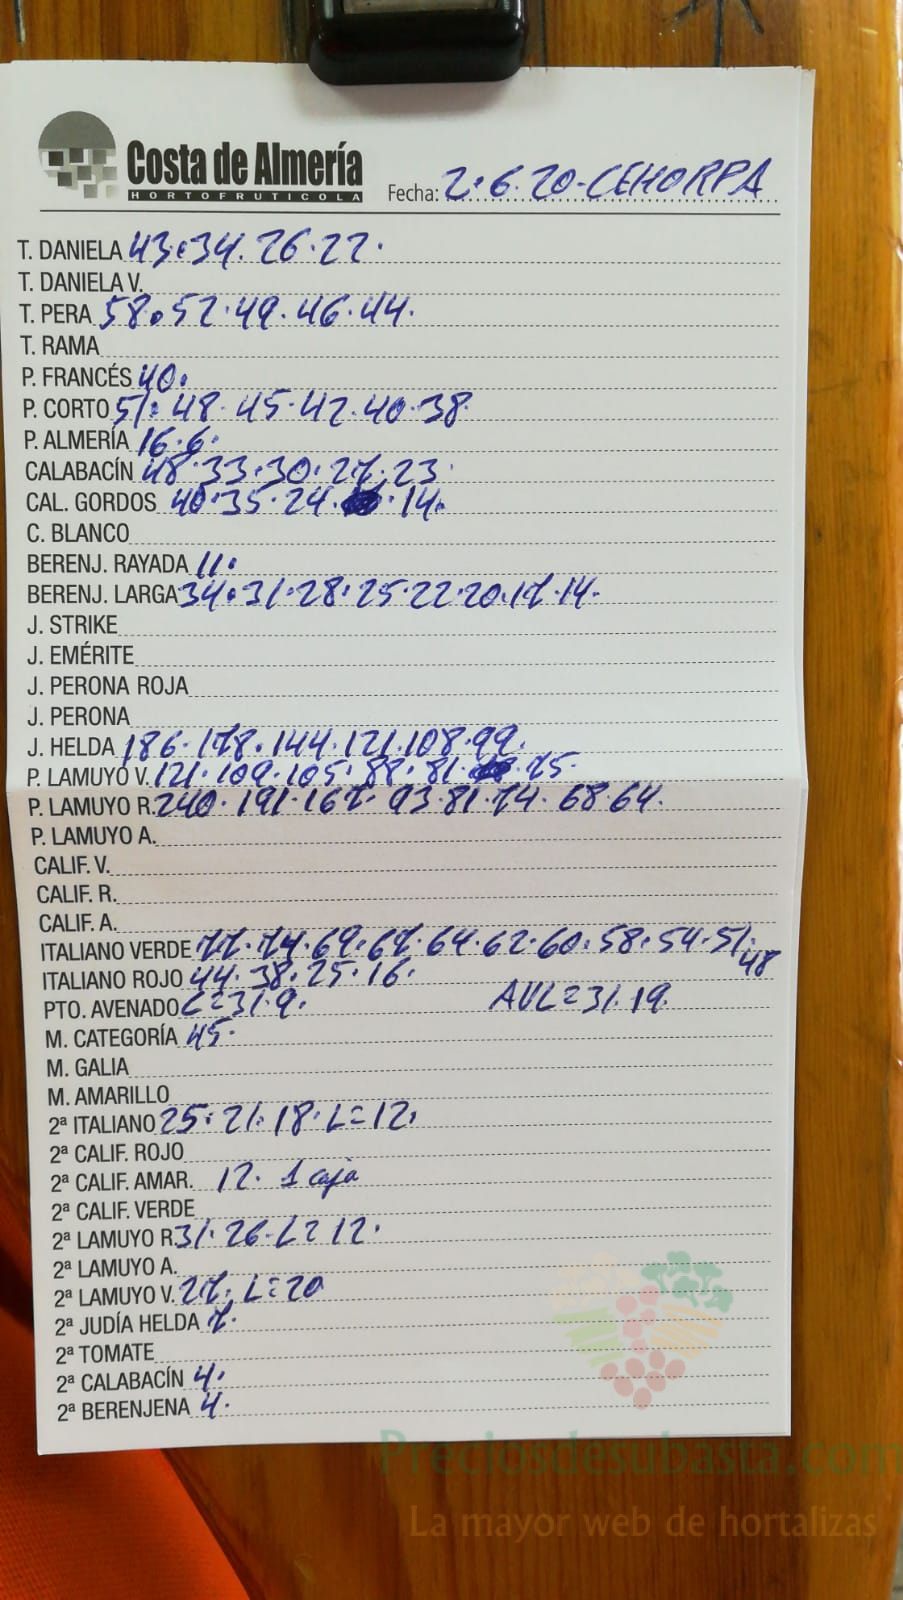 Costa de Almería
HORTOFRUTICOLA
Fecha: 2.6.20-CEHORPA
T. DANIELA 43.34.26.22.
T. DANIELA V.
T. PERA 58.52.49.46.44.
T. RAMA
P. FRANCÉS 40.
P. CORTO 51.48.45.42.40.38
P. ALMERÍA 16.6.
CALABACÍN 48.33.30.27.23.
CAL. GORDOS 40.35.24. .14.
C. BLANCO
BERENJ. RAYADA 11.
BERENJ. LARGA 34.31.28.25.22.20.17.14.
J. STRIKE
J. EMÉRITE
J. PERONA ROJA
J. PERONA
J. HELDA 186.178.144.121.108.99.
P. LAMUYO V. 121.109.105.88.81. .75.
P. LAMUYO R. 240.191.167.93.81.74.68.64.
P. LAMUYO A.
CALIF. V.
CALIF. R.
CALIF. A.
ITALIANO VERDE 77.74.69.67.64.62.60.58.54.51.
48
ITALIANO ROJO 44.38.25.16.
PTO. AVENADO C=31.9. AVL=31.19.
M. CATEGORÍA 45.
M. GALIA
M. AMARILLO
2ª ITALIANO 25.21.18.L=12.
2ª CALIF. ROJO
2ª CALIF. AMAR. 12. 1 caja
2ª CALIF. VERDE
2ª LAMUYO R 31.26.L=12.
2ª LAMUYO A.
2ª LAMUYO V. 27. L=20
2ª JUDÍA HELDA 7.
2ª TOMATE
2ª CALABACÍN 4.
2ª BERENJENA 4.
Preciosdesubasta.com
La mayor web de hortalizas